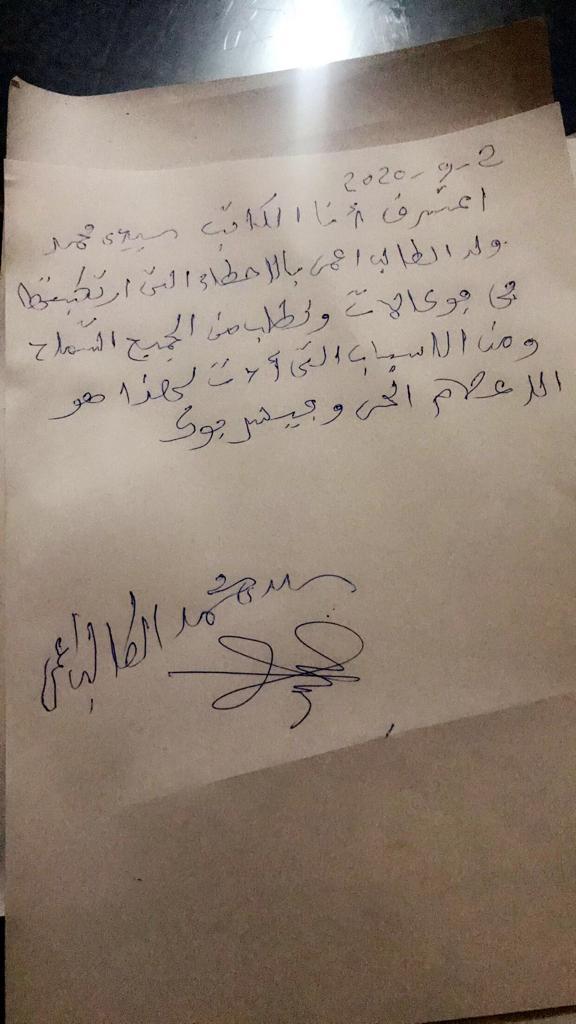 2020-9-2
اعترف أنا الكاتب سيدي محمد
ولد الطالب اعمر بالاخطاء التي ارتكبتها
في ونطلب من الجميع السماح
ومن الاسباب التي أدت لهذا هو
و
سيد محمد الطالب اعمر